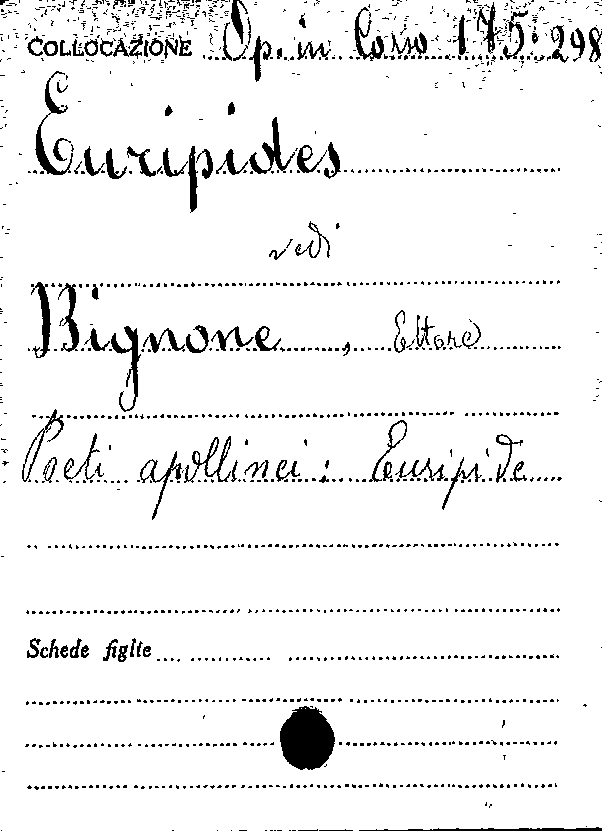 COLLOCAZIONE Op. in Corso 175.298
Euripides
vedi
Bignone, Ettore
Poeti apollinei: Euripide
Schede figlie